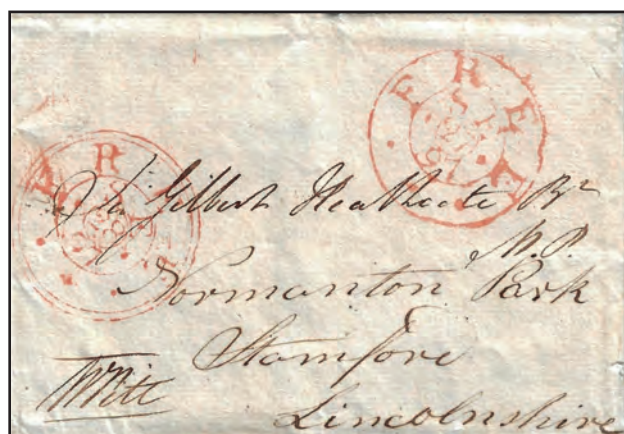 FREE
Sir Gilbert Heathcote Bt
M.P.
Normanton Park
Stamford
WPitt
Lincolnshire